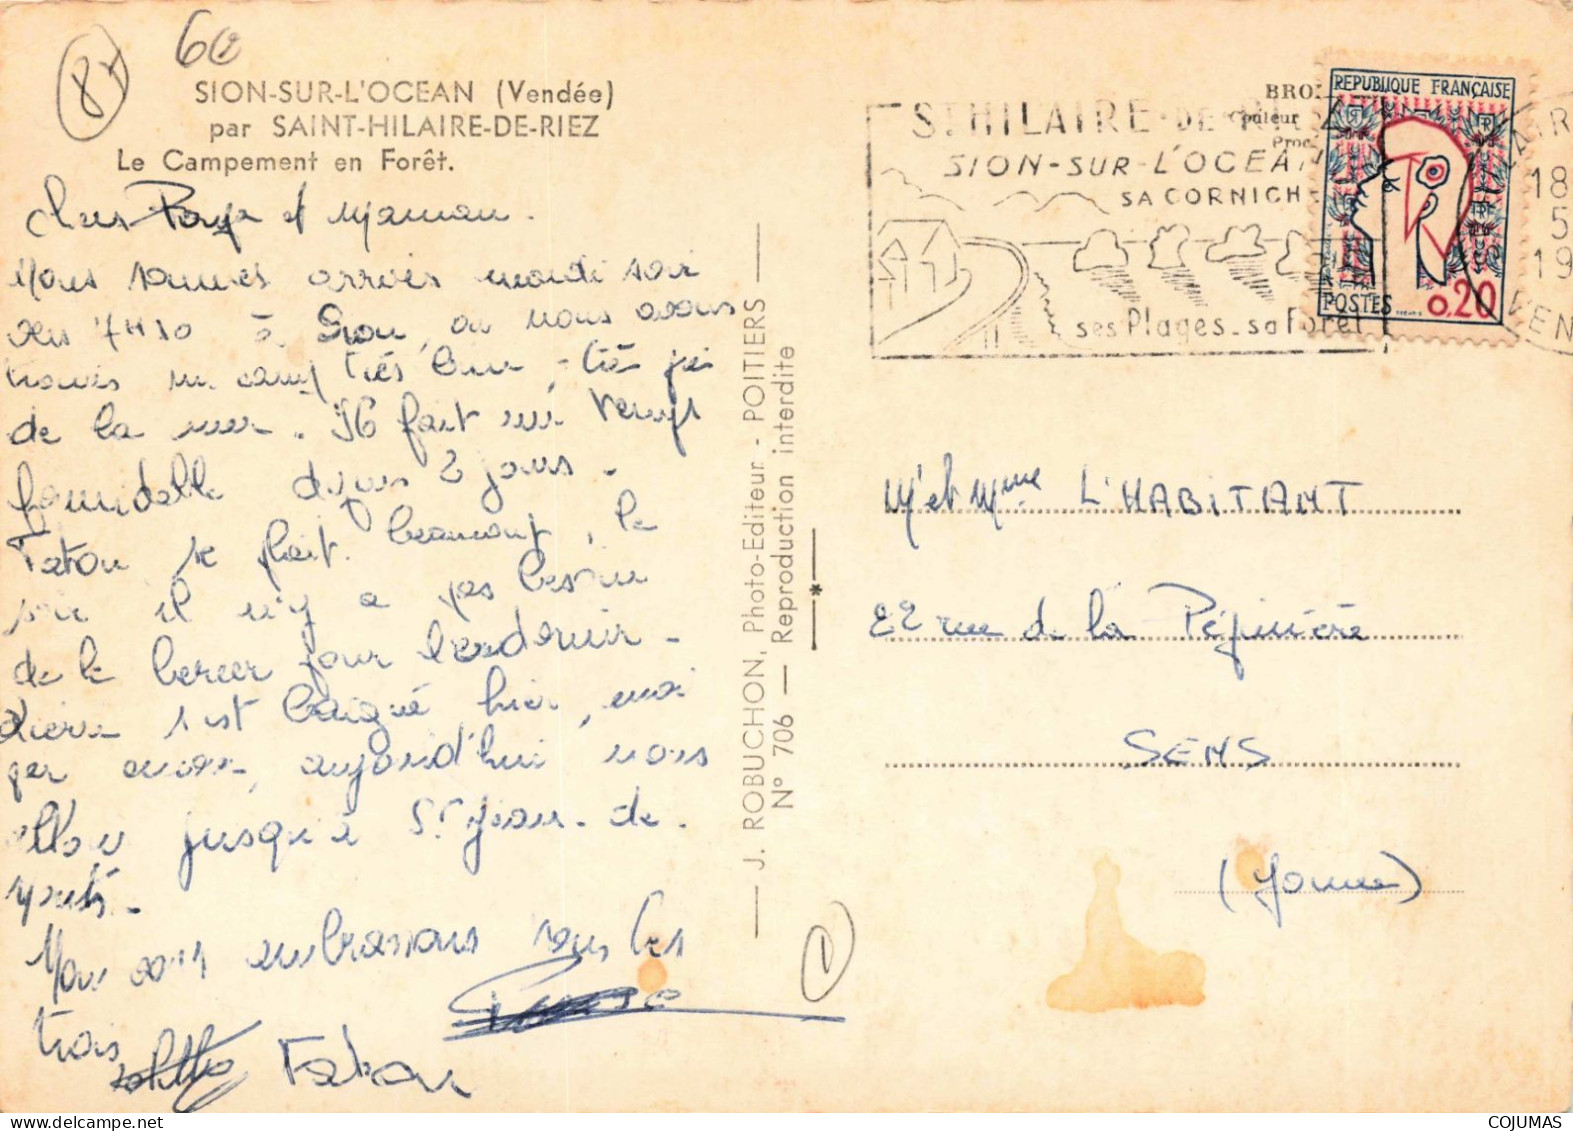 87
60
SION-SUR-L'OCEAN (Vendée)
par SAINT-HILAIRE-DE-RIEZ
Le Campement en Forêt.
Chers Papa et Maman.
Nous sommes arrivés mardi soir
vers 7H30 à Sion, ou nous avons
trouvés un camp très bien, très près
de la mer. Il fait un temps
formidable depuis 2 jours.
Tatou se plait beaucoup, le
soir il n'y a pas besoin
de le bercer pour l'endormir.
Pierre s'est baigné hier, moi
pas encore, aujourd'hui nous
allons jusqu'à St Jean-de-
Monts.
Nous vous embrassons tous les
trois
Tatou
J. ROBUCHON, Photo-Editeur - POITIERS
N° 706 — Reproduction interdite
BRO
Couleur
Proc
ST HILAIRE-DE-RI
SION-SUR-L'OCEAN
SA CORNICHE
ses Plages_sa Forêt
REPUBLIQUE FRANÇAISE
RF
POSTES
0,20
18
5
19
VEN
Mr et Mme L'HABITANT
22 rue de la Pépinière
SENS
(Yonne)
1
COJUMAS